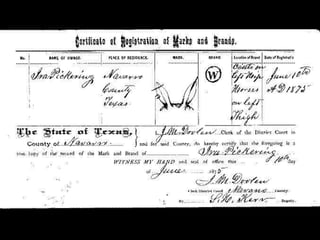 Certificate of Registration of Marks and Brands.
No. NAME OF OWNER. PLACE OF RESIDENCE. MARK. BRAND. Location of Brand Date of Registrat'n
Ira Pickering Navarro County Texas W Cattle on left Hip Horses on left Thigh June 10th A.D 1875
The State of Texas, J. M. Doolen Clerk of the District Court in
County of Navarro and for said County, do hereby certify that the foregoing is a
true copy of the record of the Mark and Brand of Ira Pickering
WITNESS MY HAND and seal of office this 10th
day of June 1875
J. M. Doolen
Clerk District Court Navarro County